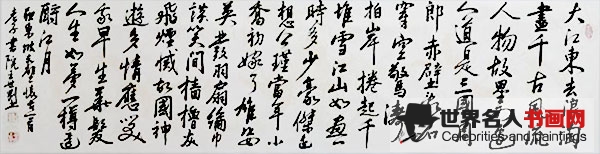 大江東去浪淘
盡千古風流
人物故壘西邊
人道是三國周
郎赤壁亂石
穿空驚濤
拍岸捲起千
堆雪江山如畫一
時多少豪傑遙
想公瑾當年小
喬初嫁了雄姿
英發羽扇綸巾
談笑間檣櫓灰
飛煙滅故國神
遊多情應笑
我早生華髮
人生如夢一樽還
酹江月
世界名人书画网
Celebrities and paintings